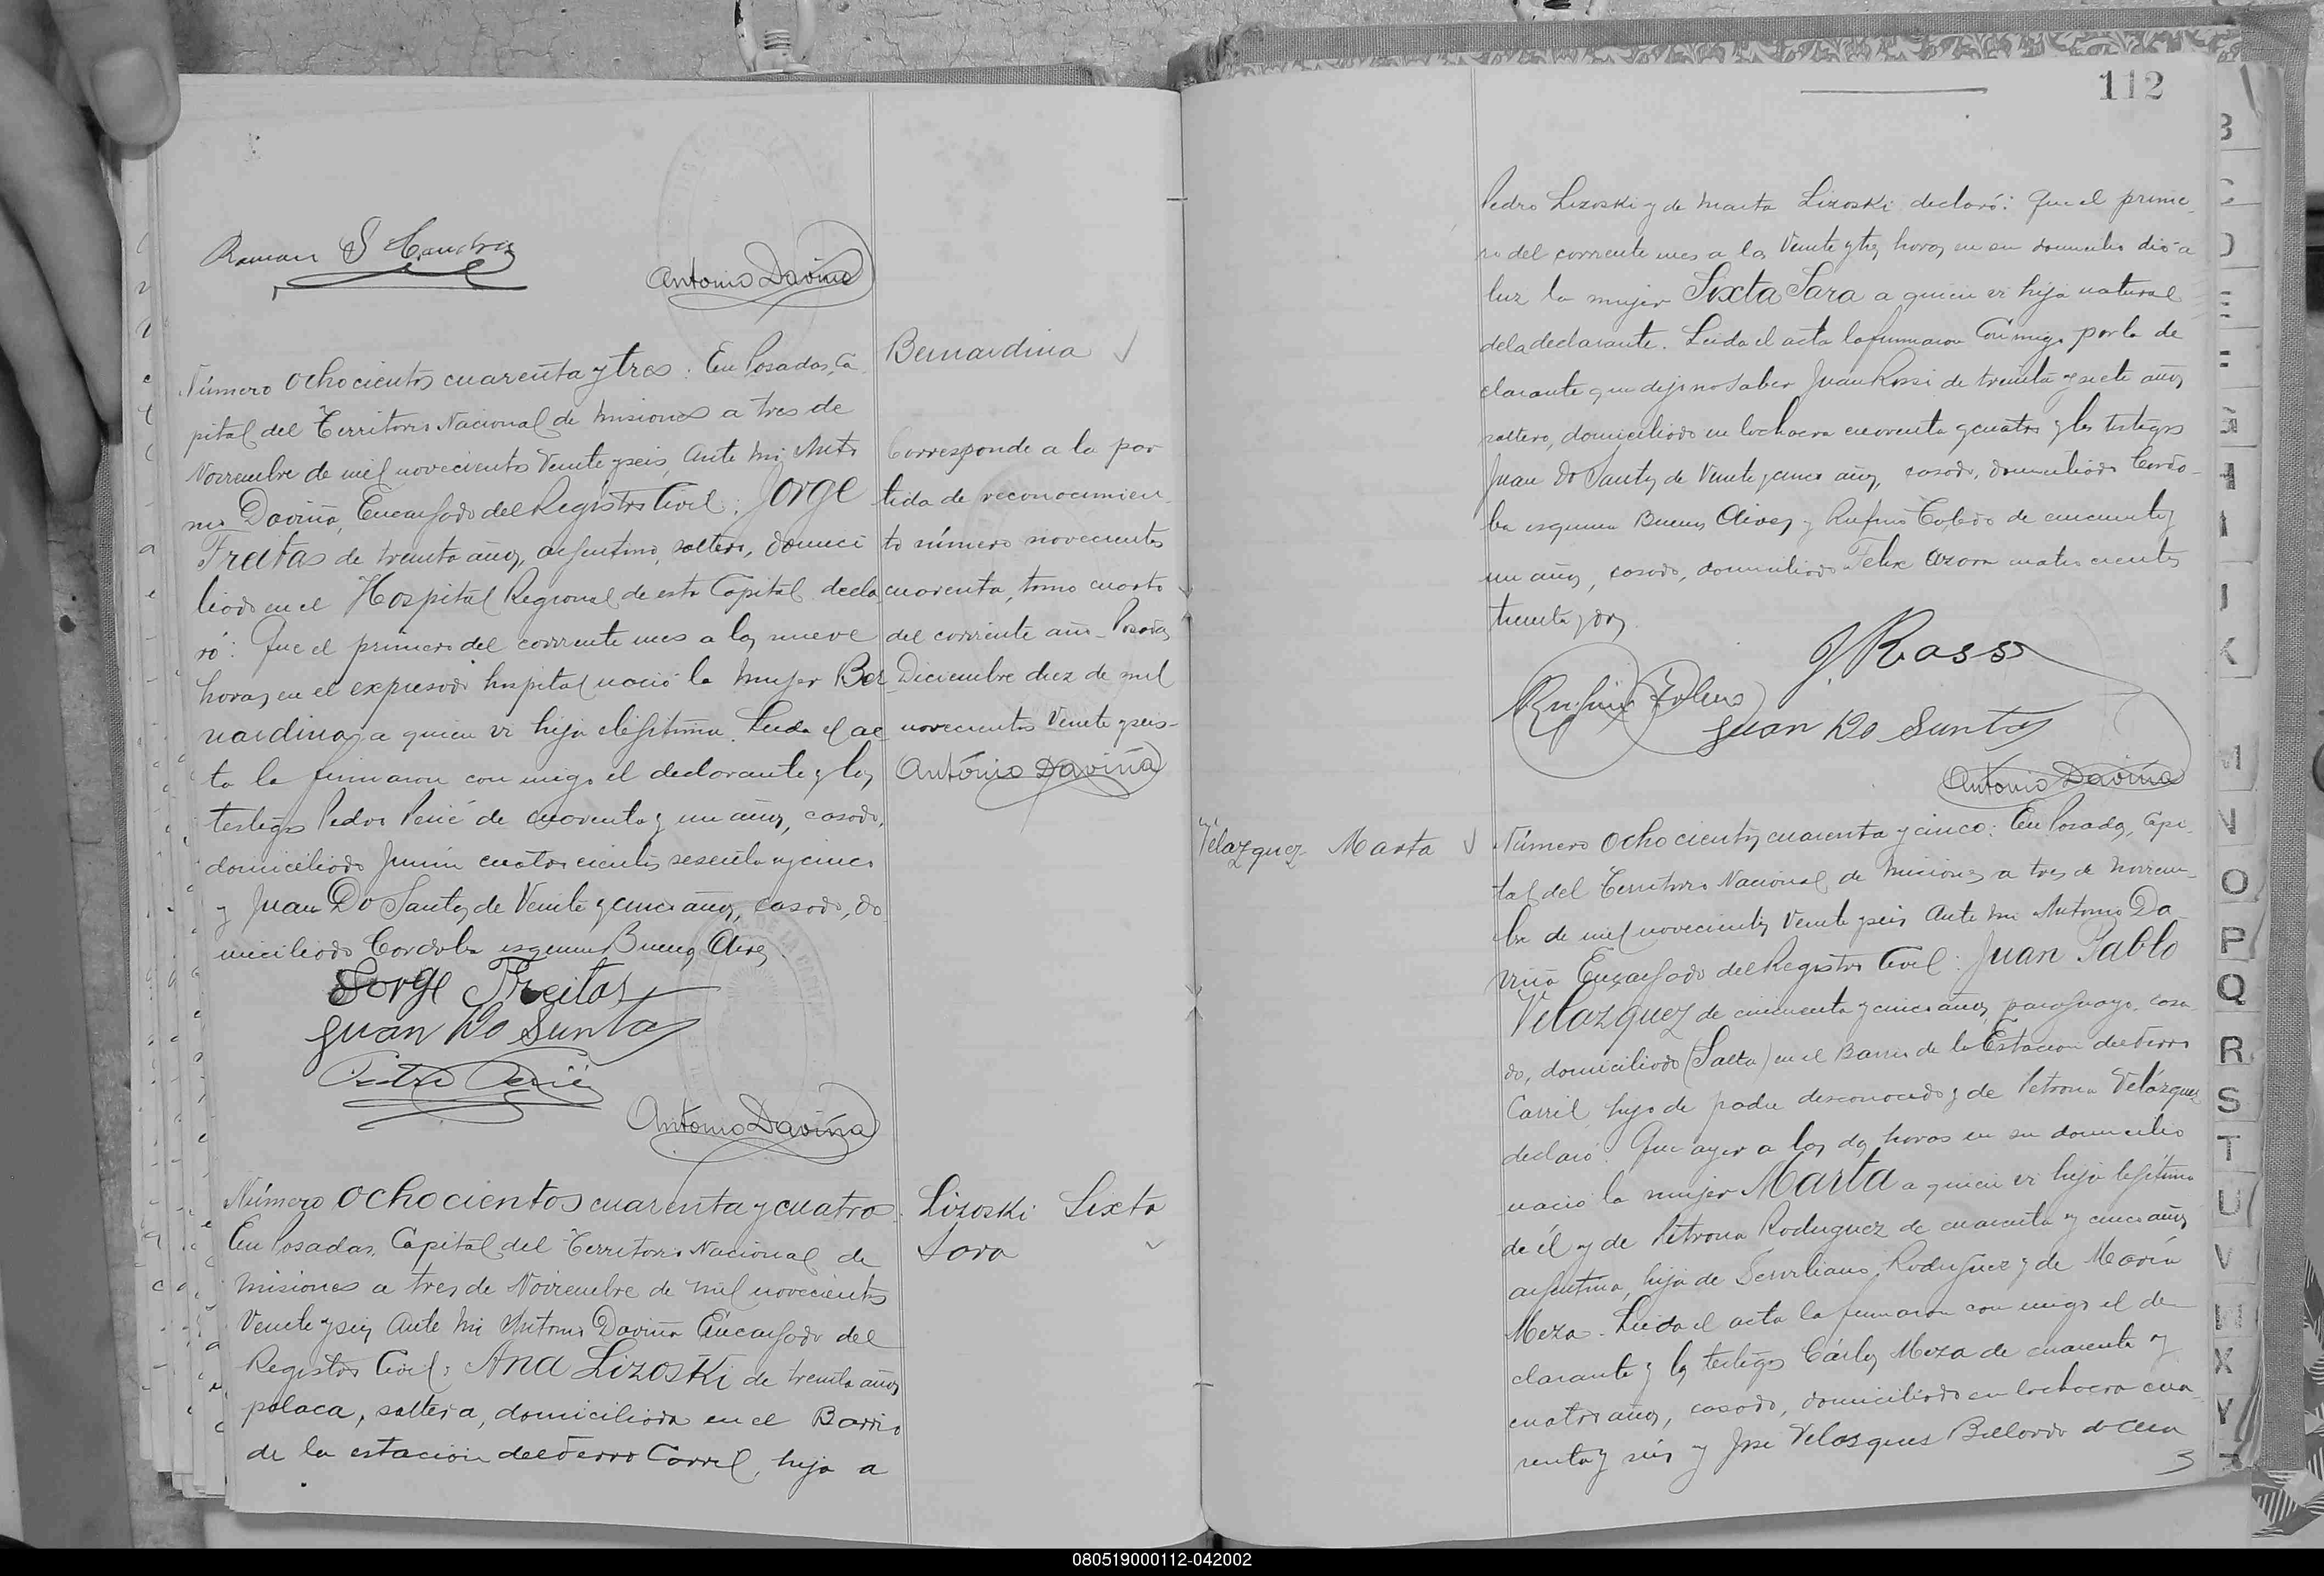 Ramon S
Antonio Daviña
Bernardina
Número ochocientos cuarenta y tres: En Posadas, Ca
pital del Territorio Nacional de Misiones a tres de
Noviembre de mil novecientos Veinte y seis, Ante mi Anto
nio Daviña, Encargado del Registro Civil: Jorge
Freitas de treinta años, argentino, soltero, domici
liado en el Hospital Regional de esta Capital decla
ró: Que el primero del corriente mes a las nueve
horas en el expresado hospital nació la mujer Ber
nardina, a quien vi hija ilegítima. Leida el ac
ta la firmaron con migo el declarante y los
testigos Pedro Perié de cuarenta y un años, casado,
domiciliado Junin cuatro cientos sesenta y cinco
y Juan Do Santos de Veinte y cinco años, casado, do
miciliado Cordoba esquina Buenos Aires.
Corresponde a la par
tida de reconocimien
to número novecientos
cuarenta, tomo cuarto
del corriente año - Posadas
Diciembre diez de mil
novecientos Veinte y seis-
Antonio Daviña
Jorge Freitas
Juan Do Santos
Pedro Perié
Antonio Daviña
Lizoski Sixta
Sara
Número ochocientos cuarenta y cuatro.
En Posadas, Capital del Territorio Nacional de
Misiones a tres de Noviembre de mil novecientos
Veinte y seis Ante mi Antonio Daviña Encargado del
Registro Civil: Ana Lizoski de treinta años
polaca, soltera, domiciliada en el Barrio
de la estación del Ferro Carril, hija a
112
Pedro Lizoski y de Marta Lizoski declaró: Que el prime
ro del corriente mes a las Veinte y tres horas en su domicilio dió a
luz la mujer Sixta Sara a quien vi hija natural
de la declarante. Leida el acta la firmaron Conmigo por la de
clarante que dijo no saber Juan Rossi de treinta y siete años
soltero, domiciliado en la chacra cuarenta y cuatro y los testigos
Juan Do Santos de Veinte y cinco años, casado, domiciliado Cordo-
ba esquina Buenos Aires y Rufino Toledo de cincuenta y
un años, casado, domiciliado Felix Azara cuatro cientos
treinta y dos.
J. Rossi
Rufino Toledo
Juan Do Santos
Antonio Daviña
Velazquez Marta
Número ochocientos cuarenta y cinco: En Posadas, Capi
tal del Territorio Nacional de Misiones a tres de Noviem-
bre de mil novecientos Veinte y seis Ante mi Antonio Da
viña Encargado del Registro Civil: Juan Pablo
Velazquez de cincuenta y cinco años, paraguayo, casa
do, domiciliado (Salta) en el Barrio de la Estacion del Ferro
Carril, hijo de padre desconocido y de Petrona Velázquez
declaró: Que ayer a las dos horas en su domicilio
nació la mujer Marta a quien vi hija legítima
de él y de Petrona Rodriguez de cuarenta y cinco años
argentina, hija de Rodriguez y de María
Meza. Leida el acta la firmaron con migo el de
clarante y los testigos Cárlos Meza de cuarenta y
cuatro años, casado, domiciliado en la chacra cua
renta y seis y José Velasques de cua
3
B
C
D
E
F
G
H
I
J
K
M
N
O
P
Q
R
S
T
U
V
W
X
Y
Z
080519000112-042002